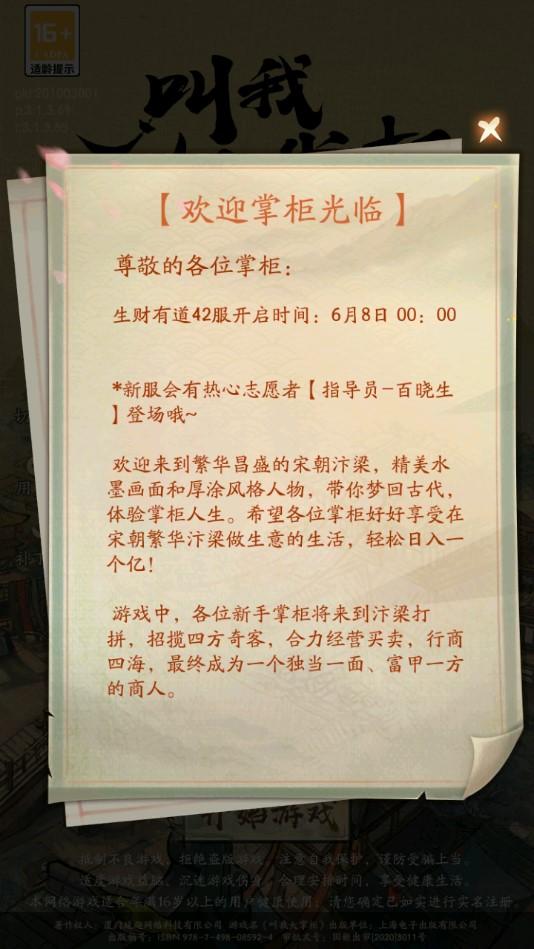 16+
CADPA
适龄提示
pid:201003001
p:3.1.3.69
r:3.1.3.65
叫我
【欢迎掌柜光临】
尊敬的各位掌柜：
生财有道42服开启时间：6月8日 00：00
*新服会有热心志愿者【指导员-百晓生
】登场哦~
欢迎来到繁华昌盛的宋朝汴梁，精美水
墨画面和厚涂风格人物，带你梦回古代，
体验掌柜人生。希望各位掌柜好好享受在
宋朝繁华汴梁做生意的生活，轻松日入一
个亿！
游戏中，各位新手掌柜将来到汴梁打
拼，招揽四方奇客，合力经营买卖，行商
四海，最终成为一个独当一面、富甲一方
的商人。
开始游戏
抵制不良游戏，拒绝盗版游戏。注意自我保护，谨防受骗上当。
适度游戏益脑，沉迷游戏伤身。合理安排时间，享受健康生活。
本网络游戏适合年满16岁以上的用户健康使用；请您确定已如实进行实名注册。
游戏名《叫我大掌柜》出版单位：上海电子出版有限公司
出版物号：ISBN 978-7-498-08592-4